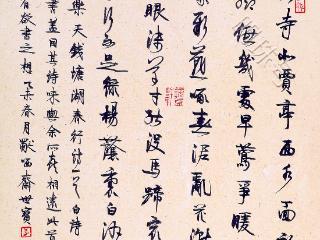 寺北賈亭西水面初
腳低幾處早鶯爭暖
家新燕啄春泥亂花漸
眼淺草才能沒馬蹄最
行不足綠楊蔭裏白沙
樂天錢塘湖春行詩一首白詩
書蓋因其詩味與余心相遠此首
有啟書之想春月西齋世賢